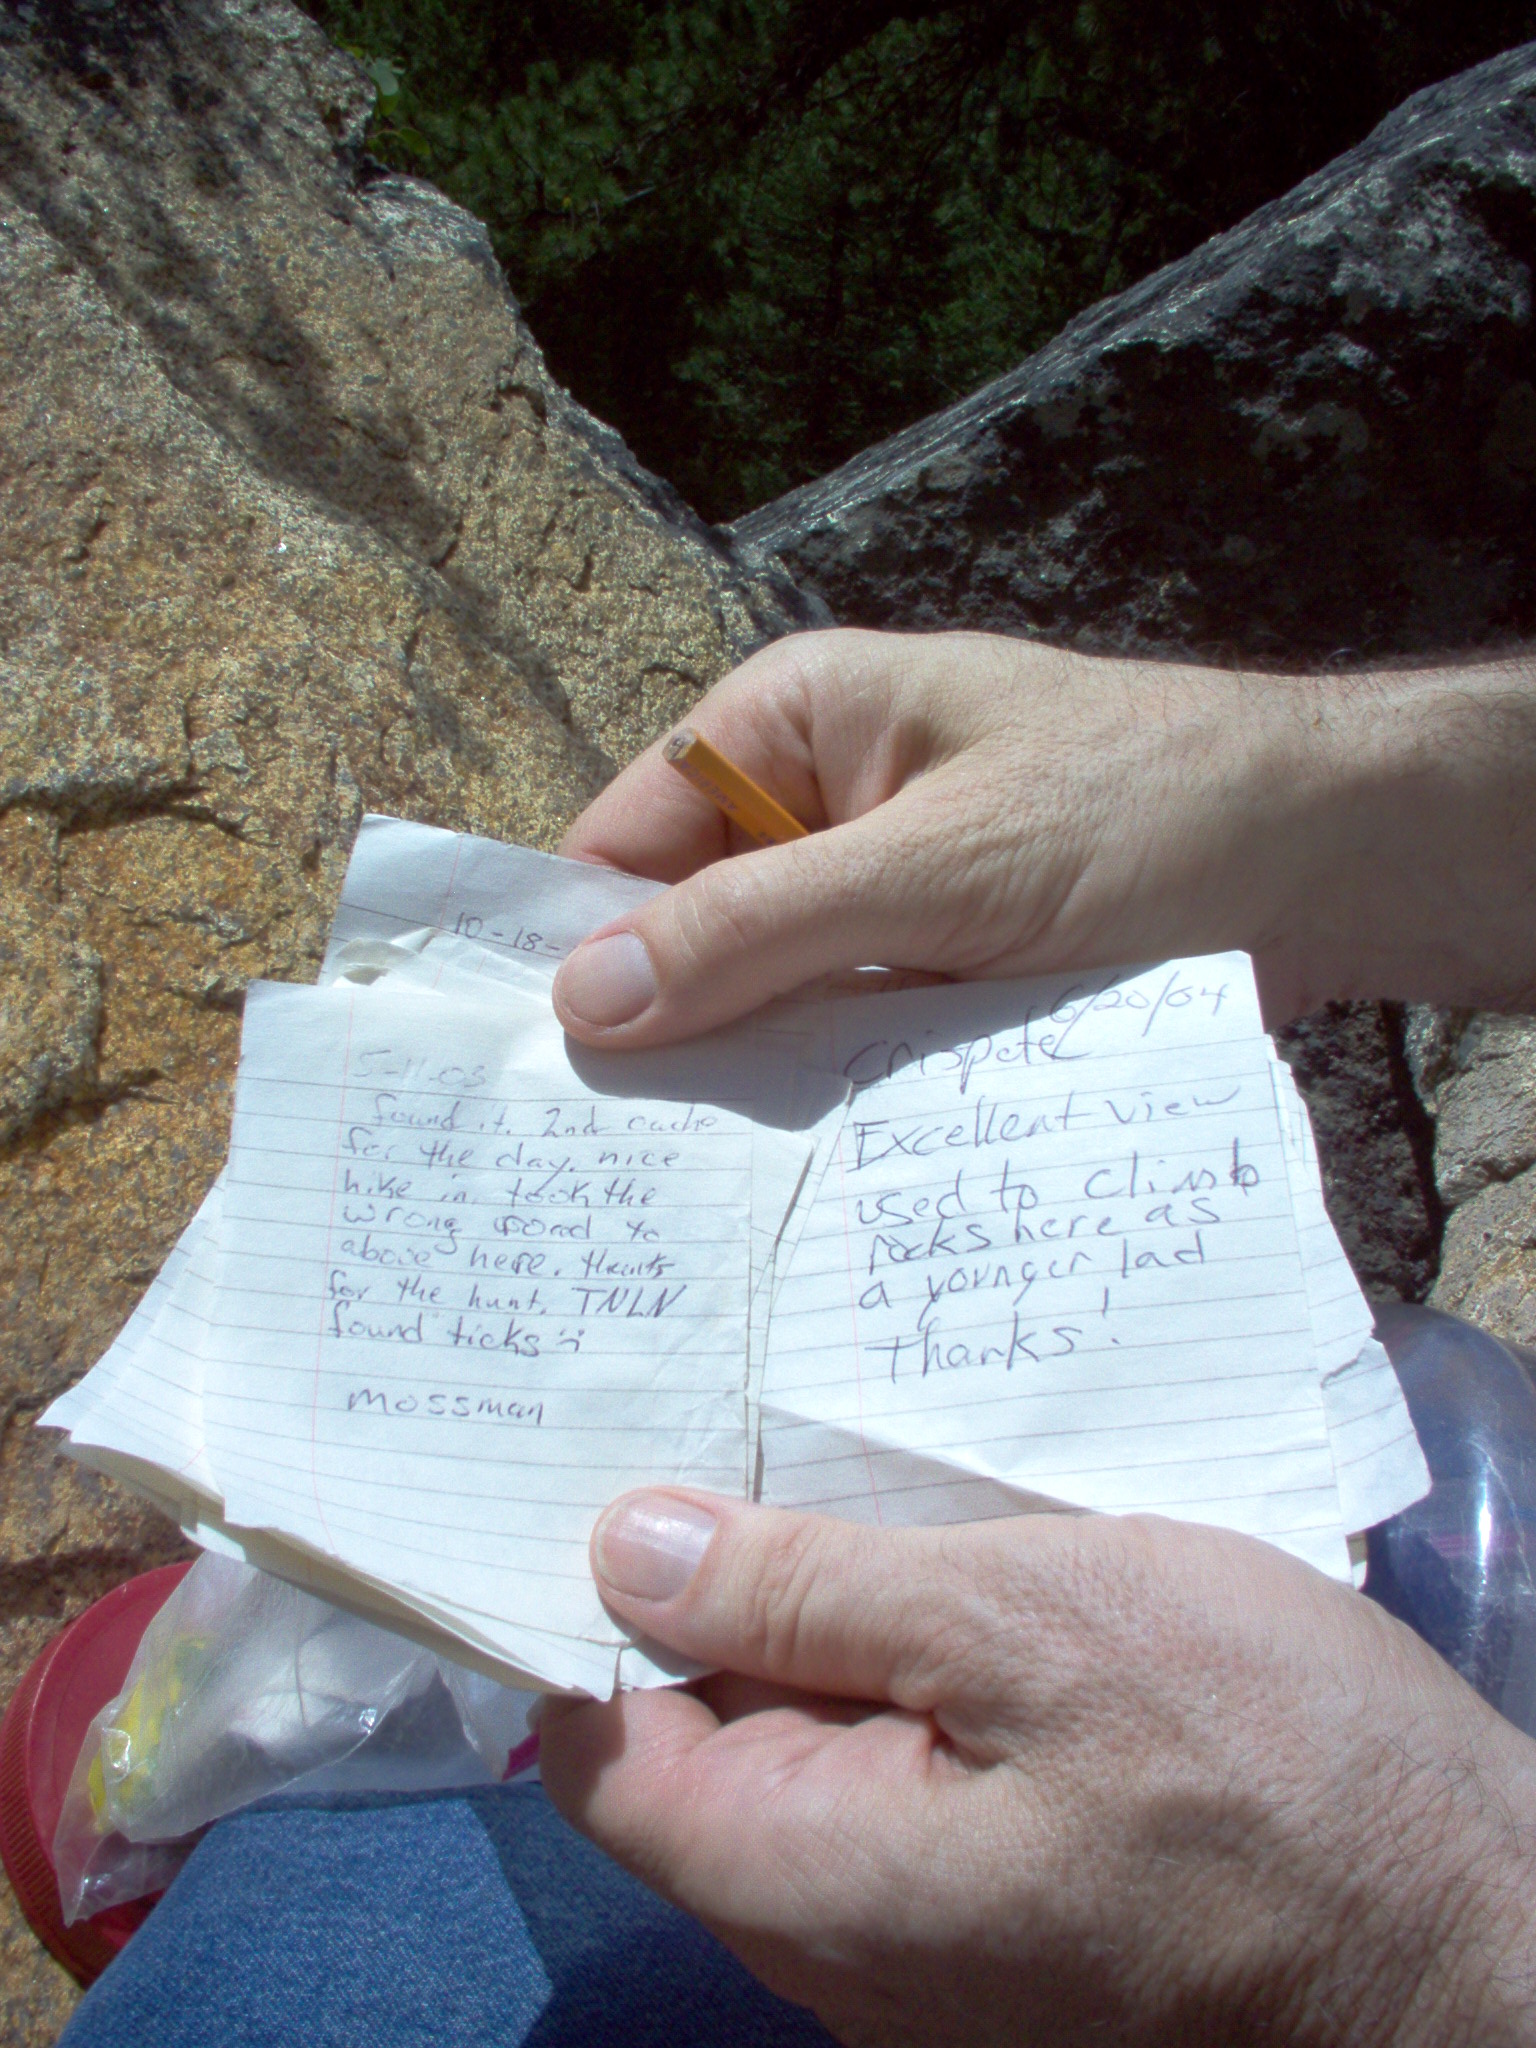 10-18-
5-11-03
found it. 2nd cache
for the day. nice
hike in. took the
wrong to
above here. thanks
for the hunt. TNLN
found ticks :-(
mossman
6/20/04
Crispete
Excellent view
used to climb
rocks here as
a younger lad
Thanks!